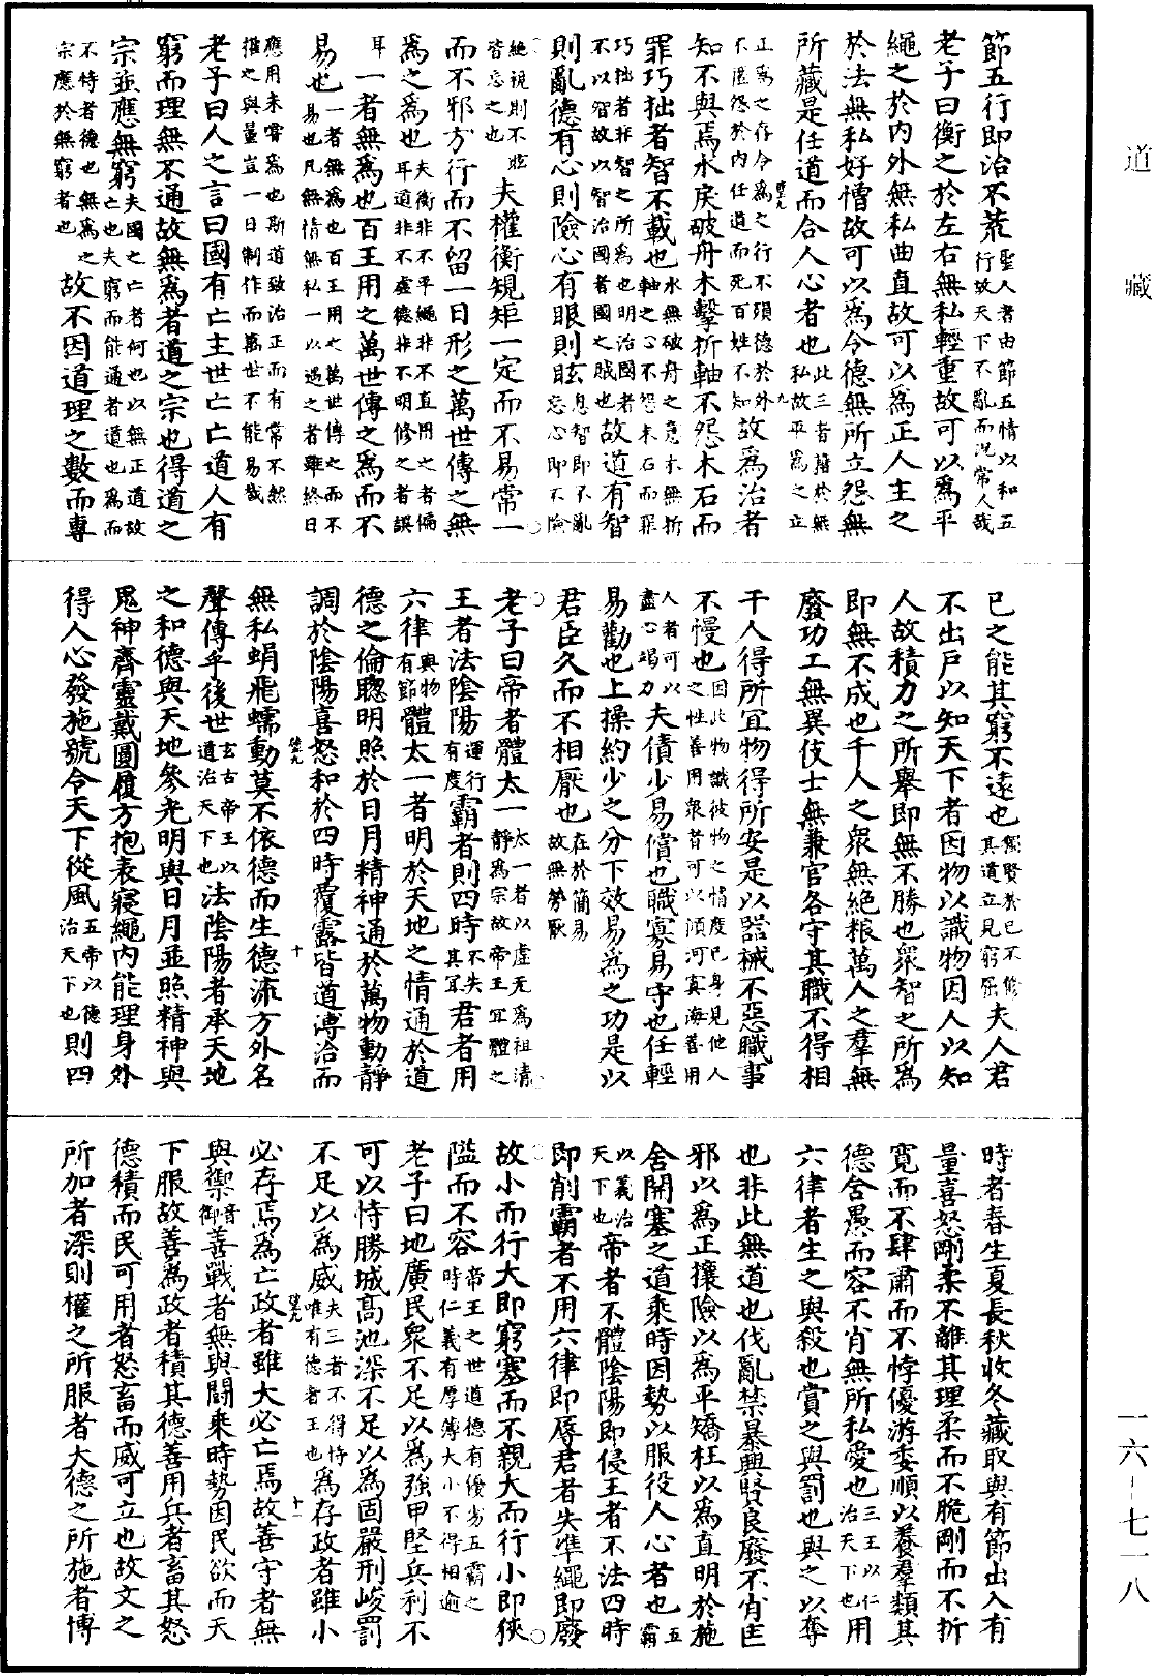 節五行即治不荒聖人者由節五情以和五行故天下不亂而況常人哉
老子曰衡之於左右無私輕重故可以為平
繩之於內外無私曲直故可以為正人主之
於法無私好憎故可以為令德無所立怨無
所藏是任道而合人心者也此三者藉於無私故平為之立
正為之存令為之行不顯德於外不匿怨於內任道而死百姓不知故為治者
知不與焉水戾破舟木擊折軸不怨木石而
罪巧拙者智不載也水無破舟之意木無折軸之心不怨木石而罪
巧拙者非智之所為也明治國者不以智故以智治國者國之賊也故道有智
則亂德有心則險心有眼則眩息智即不亂忘心即不險
絕視則不眩皆忘之也夫權衡規矩一定而不易常一
而不邪方行而不留一日形之萬世傳之無
為之為也夫衡非不平繩非不直用之者偏耳道非不虛德非不明修之者誤
耳一者無為也百王用之萬世傳之為而不
易也一者無為也百王用之萬世傳之而不易也凡無情無私一以遇之者雖終日
應用未嘗為也斯道致治正而有常不然權之與量豈一日制作而萬世不能易哉
老子曰人之言曰國有亡主世亡亡道人有
窮而理無不通故無為者道之宗也得道之
宗並應無窮夫國之亡者何也以無正道故亡也夫窮而能通者道也為而
不恃者德也無為之宗應於無窮者也故不因道理之數而專
己之能其窮不遠也衒賢於己不能其道立見窮屈夫人君
不出戶以知天下者因物以識物因人以知
人故積力之所舉即無不勝也眾智之所為
即無不成也千人之眾無絕粮萬人之羣無
廢功工無異伎士無兼官各守其職不得相
干人得所宜物得所安是以器械不惡職事
不慢也因此物識彼物之情度己身見他人之性善用眾者可以傾河寘海善用
人者可以盡心竭力夫債少易償也職寡易守也任輕
易勸也上操約少之分下效易為之功是以
君臣久而不相厭也在於簡易故無勞厭
老子曰帝者體太一太一者以虛无為祖清靜為宗故帝王宜體之
王者法陰陽運行有度霸者則四時不失其宜君者用
六律與物有節體太一者明於天地之情通於道
德之倫聰明照於日月精神通於萬物動靜
調於陰陽喜怒和於四時覆露皆道溥洽而
無私蜎飛蠕動莫不依德而生德流方外名
聲傳乎後世玄古帝王以道治天下也法陰陽者承天地
之和德與天地參光明與日月並照精神與
鬼神齊靈戴圓履方抱表寢繩內能理身外
得人心發施號令天下從風五帝以德治天下也則四
時者春生夏長秋收冬藏取與有節出入有
量喜怒剛柔不離其理柔而不脆剛而不折
寬而不肆肅而不悖優游委順以養羣類其
德舍愚而容不肖無所私愛也三王以仁治天下也用
六律者生之與殺也賞之與罰也與之以奪
也非此無道也伐亂禁暴興賢良廢不肖匡
邪以為正攘險以為平矯枉以為直明於施
舍開塞之道乘時因勢以服役人心者也五霸
以義治天下也帝者不體陰陽即侵王者不法四時
即削霸者不用六律即辱君者失準繩即廢
故小而行大即窮塞而不親大而行小即狹
隘而不容帝王之世道德有優劣五霸之時仁義有厚薄大小不得相逾
老子曰地廣民眾不足以為強甲堅兵利不
可以恃勝城高池深不足以為固嚴刑峻罰
不足以為威夫三者不得恃唯有德者王也為存政者雖小
必存焉為亡政者雖大必亡焉故善守者無
與禦音御善戰者無與鬬乘時勢因民欲而天
下服故善為政者積其德善用兵者畜其怒
德積而民可用者怒畜而威可立也故文之
所加者深則權之所服者大德之所施者博
道藏
一六-七一八